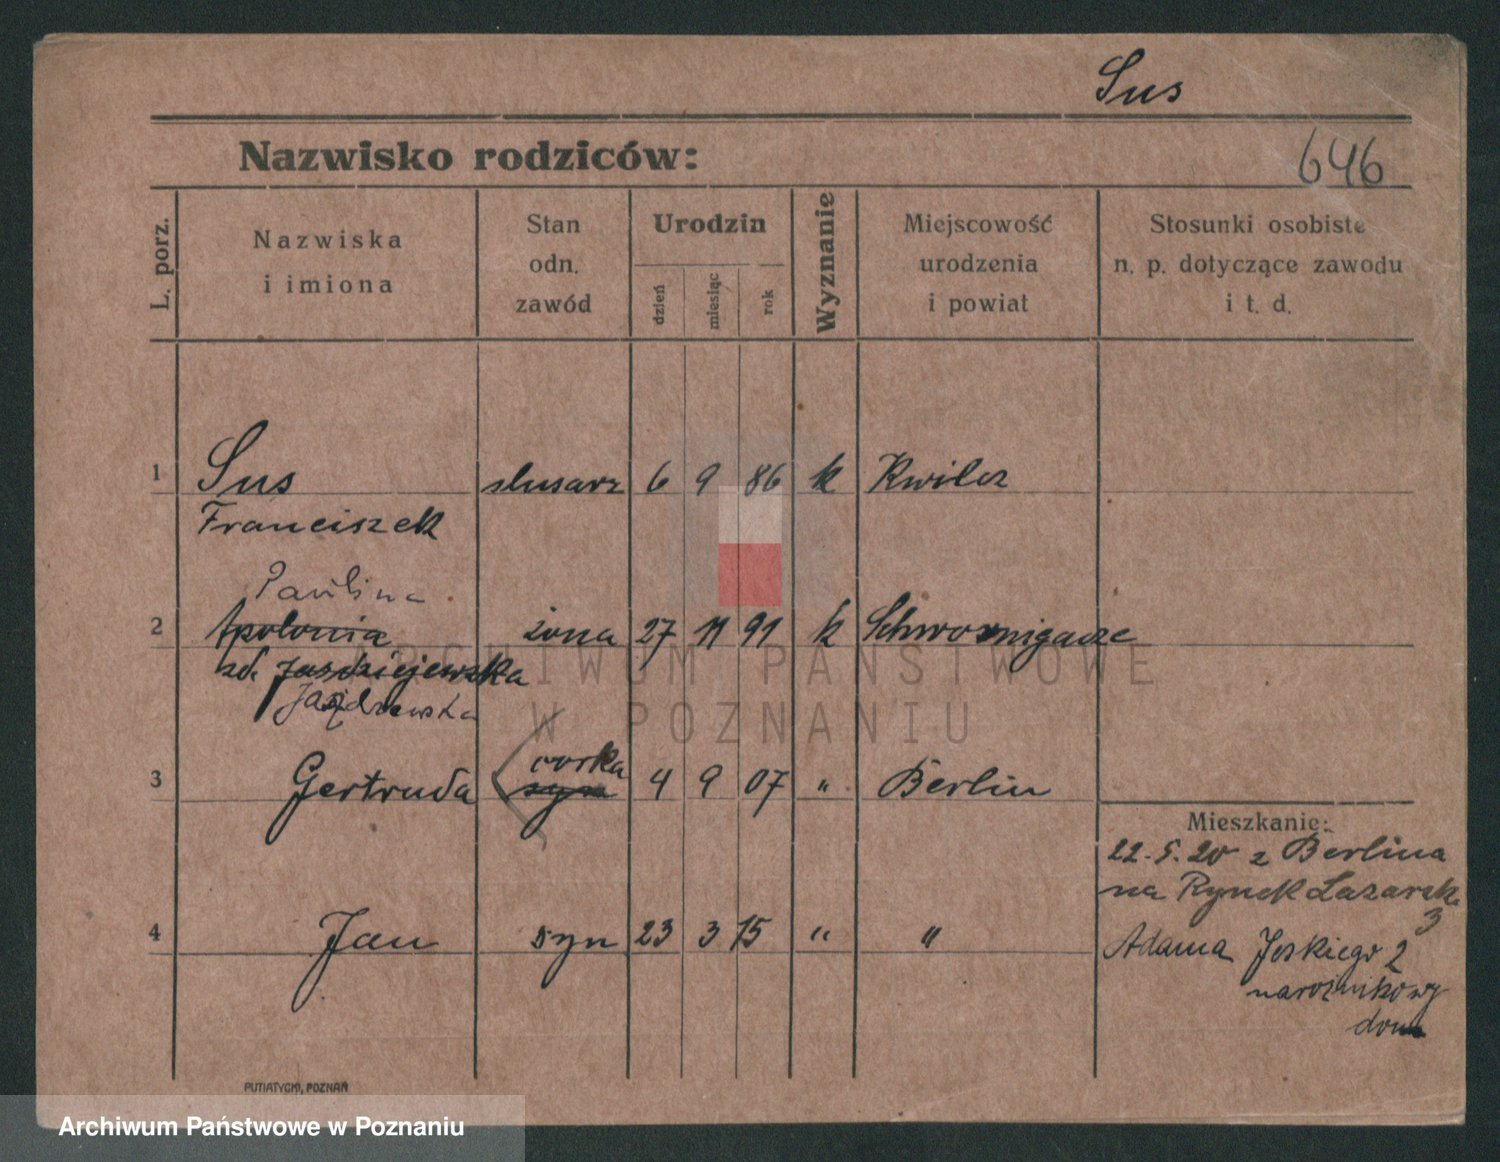 Sus
Nazwisko rodziców:
646
L. porz.
Nazwiska
i imiona
Stan
odn.
zawód
Urodzin
dzień
miesiąc
rok
Wyznanie
Miejscowość
urodzenia
i powiat
Stosunki osobiste
n. p. dotyczące zawodu
i t. d.
1 Sus slusarz 6 9 86 k Kwilcz
Franciszek
Paulina
2 Apolonia żona 27 11 91 k
zd. Jazdziejewska
Jażdzewska
córka
3 Gertruda syn 4 9 07 " Berlin
Mieszkanie:
22.5.20 z Berlina
na Rynek Lazarsk.
3
4 Jan syn 23 3 15 " "
Adama 2
narożnikowy
dom
PUTIATYCKI, POZNAŃ
ARCHIWUM PAŃSTWOWE
W POZNANIU
Archiwum Państwowe w Poznaniu